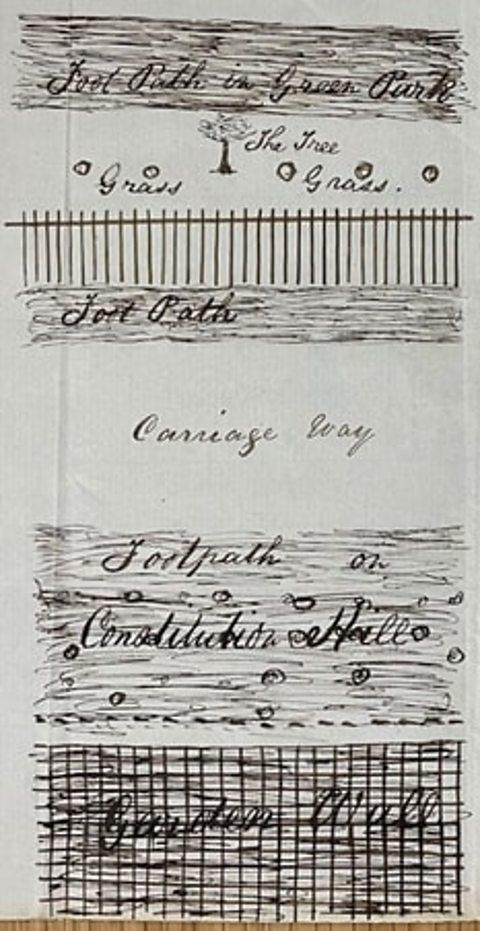 Foot Path in Green Park
The Tree
Grass Grass.
Foot Path
Carriage Way
Footpath on
Constitution Hill
Garden Wall